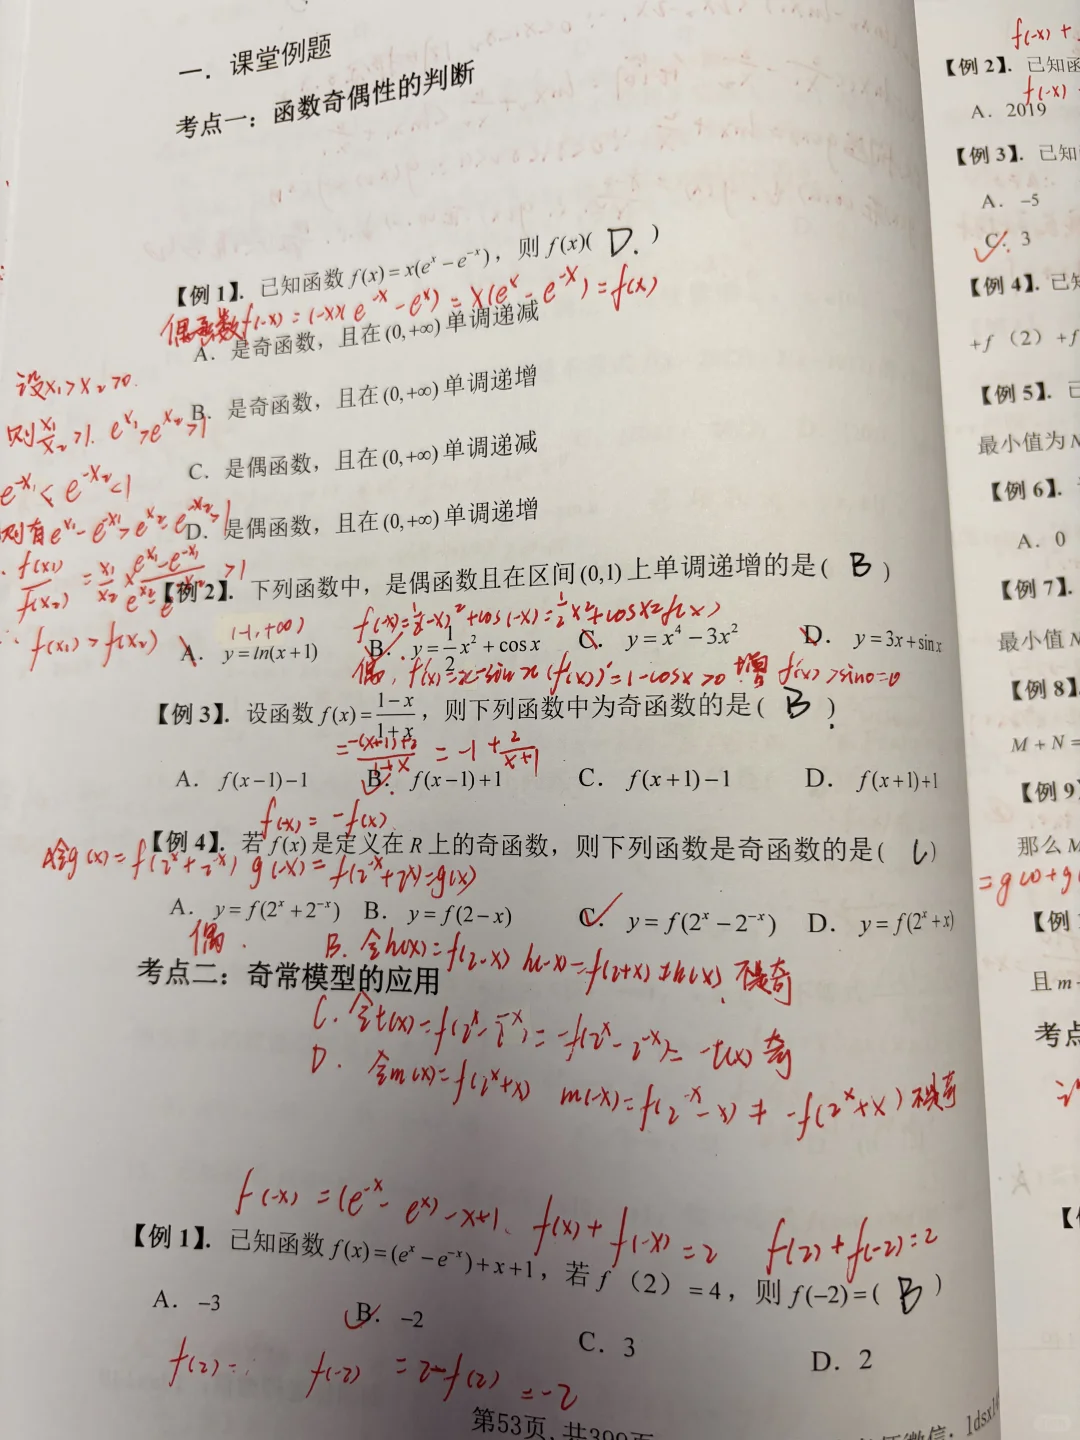 一．课堂例题
考点一：函数奇偶性的判断
【例 1】. 已知函数 f(x)=x(eˣ−e⁻ˣ)，则 f(x)( D. )
偶函数 f(-x)=(-x)(e⁻ˣ-eˣ)=x(eˣ-e⁻ˣ)=f(x)
A．是奇函数，且在(0,+∞)单调递减
设x₁>x₂>0.
B．是奇函数，且在(0,+∞)单调递增
则x₁/x₂>1. eˣ¹>eˣ²>1
C．是偶函数，且在(0,+∞)单调递减
e⁻ˣ¹<e⁻ˣ²<1
D．是偶函数，且在(0,+∞)单调递增
则有eˣ¹-e⁻ˣ¹>eˣ²-e⁻ˣ²
f(x₁)/f(x₂)=x₁/x₂×(eˣ¹-e⁻ˣ¹)/(eˣ²-e⁻ˣ²)>1
∴f(x₁)>f(x₂)
【例 2】. 下列函数中，是偶函数且在区间(0,1)上单调递增的是( B )
(-1,+∞)
f(-x)=½(-x)²+cos(-x)=½x²+cosx=f(x)
A．y=ln(x+1) B．y=½x²+cosx C．y=x⁴−3x² D．y=3x+sinx
偶，f'(x)=x-sinx (f'(x))'=1-cosx>0 增 f'(x)>sin0=0
【例 3】. 设函数 f(x)=(1−x)/(1+x)，则下列函数中为奇函数的是( B )
=(-(x+1)+2)/(1+x)=-1+2/(x+1)
A．f(x−1)−1 B．f(x−1)+1 C．f(x+1)−1 D．f(x+1)+1
f(-x)=-f(x)
【例 4】. 若 f(x) 是定义在 R 上的奇函数，则下列函数是奇函数的是( C )
A令g(x)=f(2ˣ+2⁻ˣ) g(-x)=f(2⁻ˣ+2ˣ)=g(x)
A．y=f(2ˣ+2⁻ˣ) B．y=f(2−x) C．y=f(2ˣ−2⁻ˣ) D．y=f(2ˣ+x)
偶.
B. 令h(x)=f(2-x) h(-x)=f(2+x)≠h(x). 不是奇
考点二：奇常模型的应用
C. 令t(x)=f(2ˣ-2⁻ˣ)=-f(2ˣ-2⁻ˣ)=-t(x) 奇
D. 令m(x)=f(2ˣ+x) m(-x)=f(2⁻ˣ-x)≠-f(2ˣ+x) 不是奇
f(-x)=(e⁻ˣ-eˣ)-x+1. f(x)+f(-x)=2 f(2)+f(-2)=2
【例 1】. 已知函数 f(x)=(eˣ−e⁻ˣ)+x+1，若 f（2）=4，则 f(−2)=( B )
A．−3 B．−2 C．3 D．2
f(2)= f(-2)=2-f(2)=-2
第53页,共399页
f(-x)+
【例 2】. 已知函
f(-x)
A．2019
【例 3】. 已知
A．−5
C．3
【例 4】. 已知
+f（2）+f
【例 5】. 已
最小值为
【例 6】.
A．0
【例 7】.
最小值
【例 8】.
M+N=
【例 9】
那么
=g(x)+g(
【例
且 m
考点
微信：1dsx1